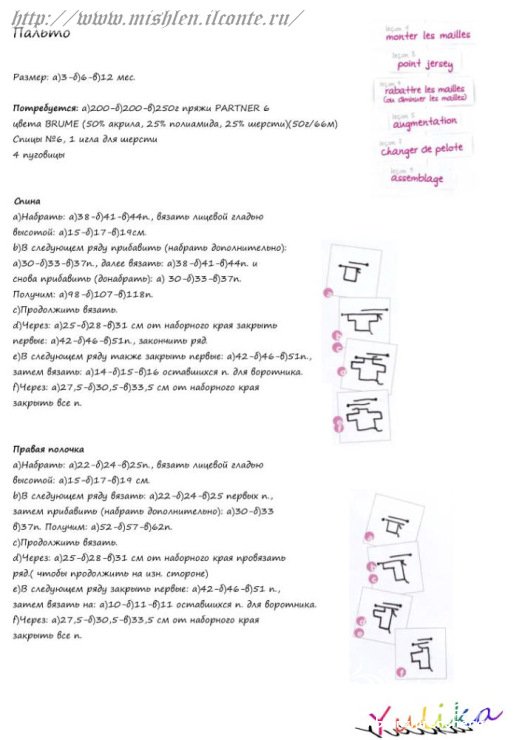 http://www.mishlen.ilconte.ru/
Пальто
Размер: а)3-б)6-в)12 мес.
Потребуется: а)200-б)200-в)250г пряжи PARTNER 6
цвета BRUME (50% акрила, 25% полиамида, 25% шерсти)(50г/66м)
Спицы №6, 1 игла для шерсти
4 пуговицы
leçon 1
monter les mailles
leçon 2
point jersey
rabattre les mailles
(ou diminuer les mailles)
leçon 5
augmentation
leçon 7
changer de pelote
leçon 9
assemblage
Спина
a)Набрать: а)38-б)41-в)44п., вязать лицевой гладью
высотой: а)15-б)17-в)19см.
b)В следующем ряду прибавить (набрать дополнительно):
а)30-б)33-в)37п., далее вязать: а)38-б)41-в)44п. и
снова прибавить (донабрать): а) 30-б)33-в)37п.
Получим: а)98-б)107-в)118п.
c)Продолжить вязать.
d)Через: а)25-б)28-в)31 см от наборного края закрыть
первые: а)42-б)46-в)51п., закончить ряд.
e)В следующем ряду также закрыть первые: а)42-б)46-в)51п.,
затем вязать: а)14-б)15-в)16 оставшихся п. для воротника.
f)Через: а)27,5-б)30,5-в)33,5 см от наборного края
закрыть все п.
a
b
c
d
Правая полочка
a)Набрать: а)22-б)24-в)25п., вязать лицевой гладью
высотой: а)15-б)17-в)19 см.
b)В следующем ряду вязать: а)22-б)24-в)25 первых п.,
затем прибавить (набрать дополнительно): а)30-б)33
в)37п. Получим: а)52-б)57-в)62п.
c)Продолжить вязать.
d)Через: а)25-б)28-в)31 см от наборного края провязать
ряд.( чтобы продолжить на изн. стороне)
e)В следующем ряду закрыть первые: а)42-б)46-в)51 п.,
затем вязать на: а)10-б)11-в)11 оставшихся п. для воротника.
f)Через: а)27,5-б)30,5-в)33,5 см от наборного края
закрыть все п.
a
b
c
d
e
f
Yulika